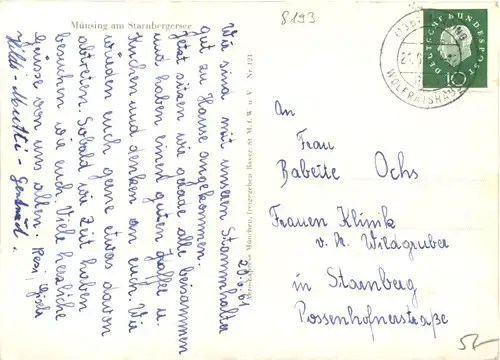 Münsing am Starnbergersee
8193
20.6.61
Wir sind mit unserem Stammhalter
gut zu Hause angekommen.
Jetzt sitzen wir gerade alle beisammen
und haben einen guten Kaffee u.
Kuchen und denken an euch. Wir
würden euch gerne etwas davon
abtreten. Sobald wir Zeit haben
besuchen wir euch. Viele herzliche
Grüsse von uns allen. Resi, Gisela
Hildi Mutti - Gertraud.
freigegeben Bayer. St. M. f. W. u. V. Nr. 121
DEUTSCHE BUNDESPOST
10
WOLFRATSHAUSEN
An
Frau
Babette Ochs
Frauen Klinik
v. A. Wildgruber
in Starnberg
Possenhofnerstraße